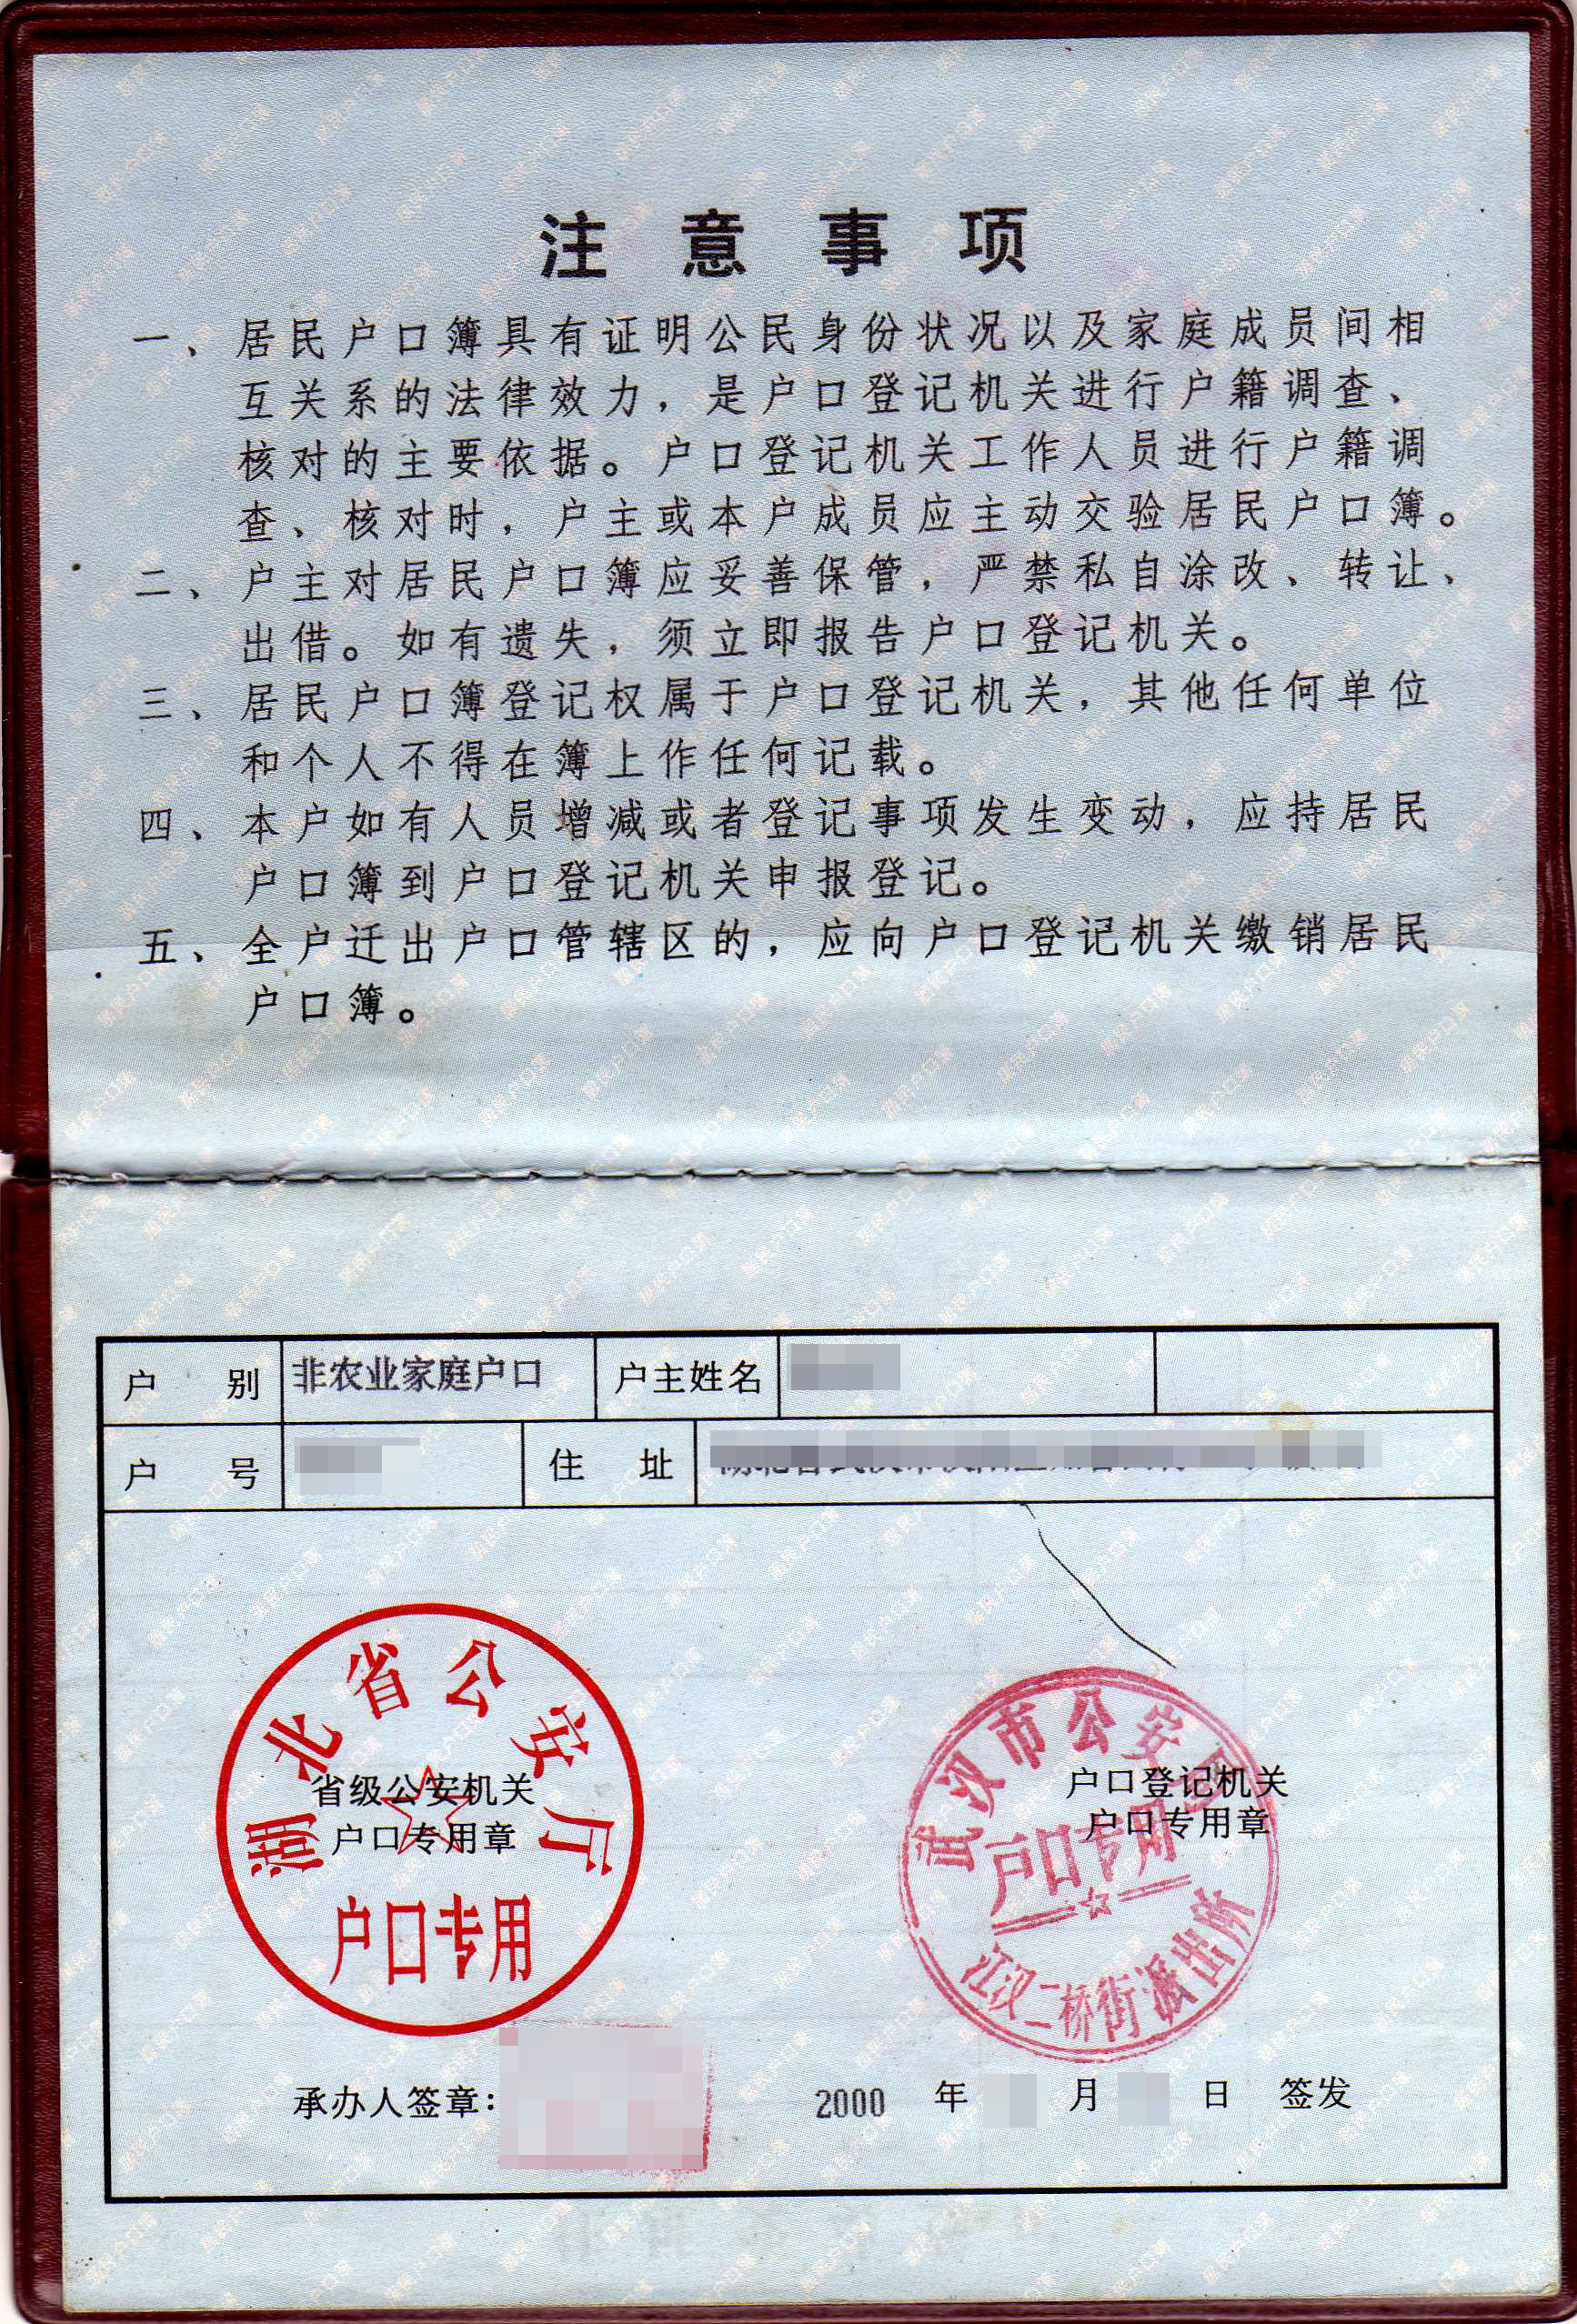 注意事项
一、居民户口簿具有证明公民身份状况以及家庭成员间相
互关系的法律效力，是户口登记机关进行户籍调查、
核对的主要依据。户口登记机关工作人员进行户籍调
查、核对时，户主或本户成员应主动交验居民户口簿。
二、户主对居民户口簿应妥善保管，严禁私自涂改、转让、
出借。如有遗失，须立即报告户口登记机关。
三、居民户口簿登记权属于户口登记机关，其他任何单位
和个人不得在簿上作任何记载。
四、本户如有人员增减或者登记事项发生变动，应持居民
户口簿到户口登记机关申报登记。
五、全户迁出户口管辖区的，应向户口登记机关缴销居民
户口簿。
户别 非农业家庭户口 户主姓名
户号 住址
湖北省公安厅
省级公安机关
户口专用章
户口专用
武汉市公安局
户口登记机关
户口专用章
户口专用
江汉二桥街派出所
承办人签章： 2000 年 月 日 签发